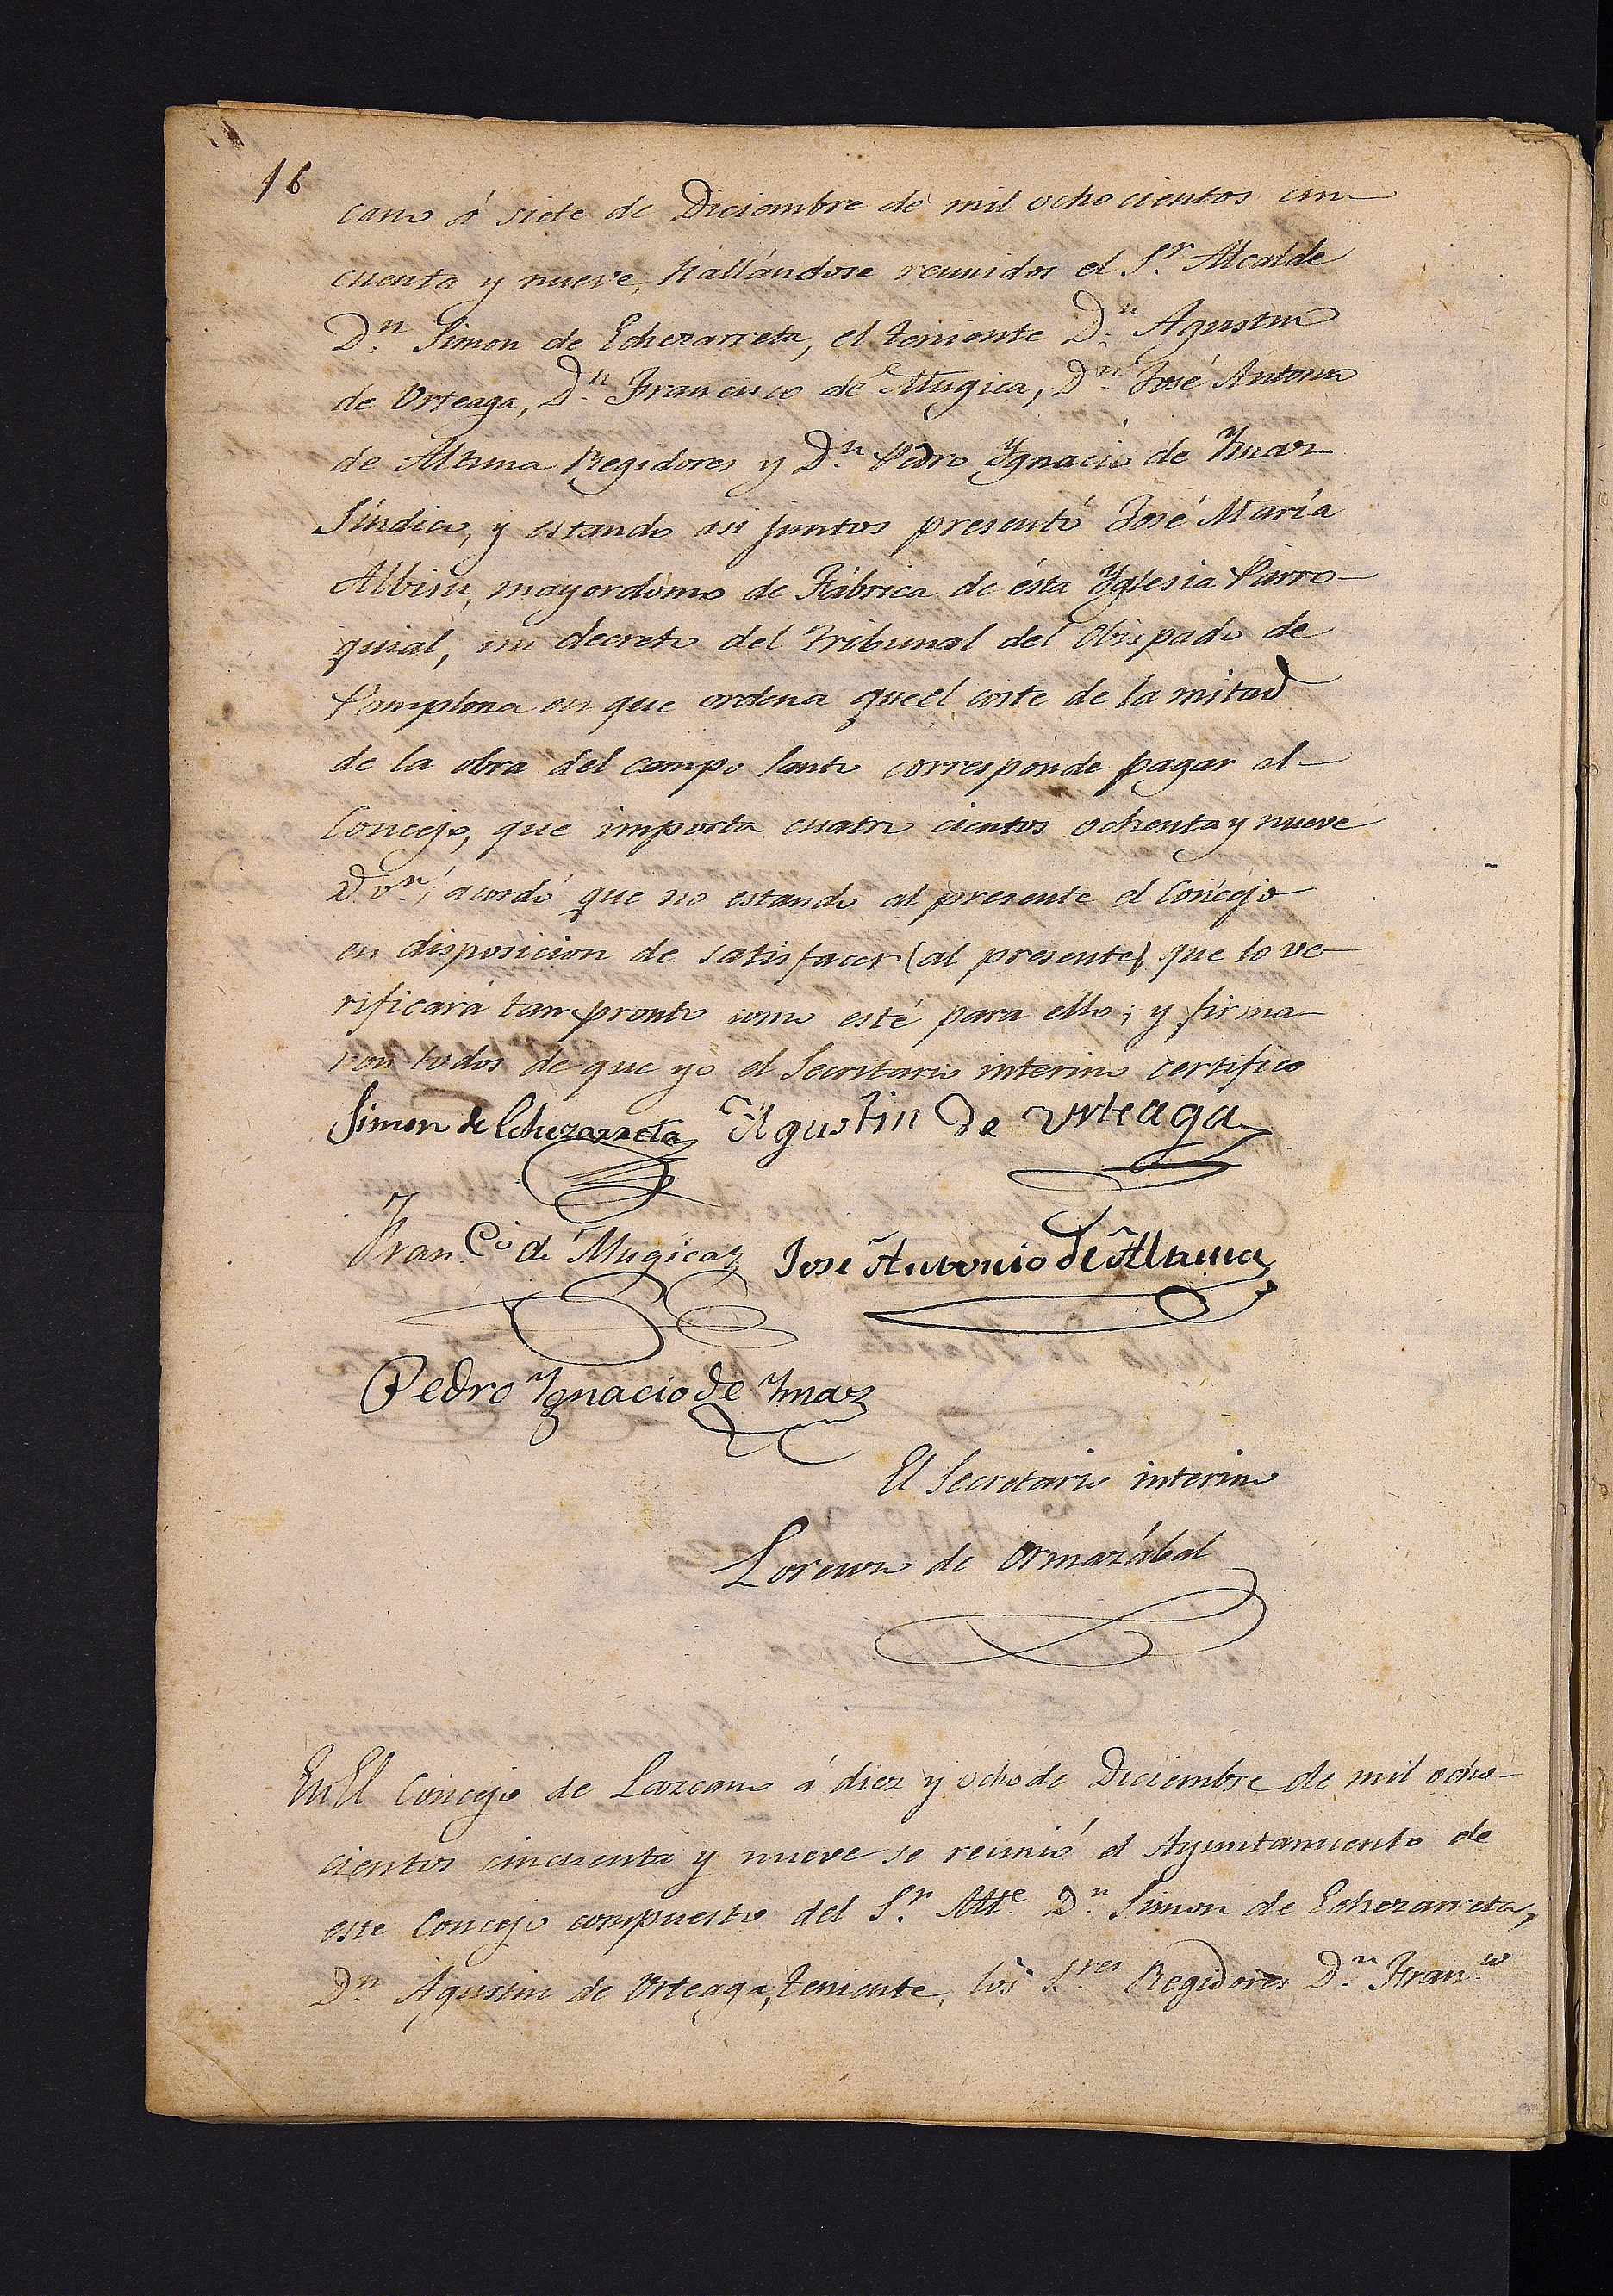 16
cano á siete de Diciembre de mil ochocientos cin
cuenta y nueve, hallándose reunidos el Sr. Alcalde
Dn. Simon de Echezarreta, el teniente Dn. Agustin
de Urteaga, Dn. Francisco de Mugica, Dn. José Antonio
de Altuna Regidores y Dn. Pedro Ygnacio de Ymaz
Síndico, y estando asi juntos presentó José María
Albisu, mayordomo de Fábrica de ésta Yglesia Parro-
quial, un decreto del Tribunal del Obispado de
Pamplona en que ordena que el coste de la mitad
de la obra del campo Santo corresponde pagar al
Concejo, que importa cuatro cientos ochenta y nueve
vn.; acordó que no estando al presente el Concejo
en disposicion de satisfacer (al presente) que lo ve-
rificará tan pronto como esté para ello; y firma
ron todos de que yo el Secritario interino certifico
Simon de Echezarreta Agustin de Urteaga
Fran.co de Mugica Jose Antonio de Altuna
Pedro Ygnacio de Ymaz
El Secretario interino
Lorenzo de Ormazábal
En El Concejo de Lazcano á diez y ocho de Diciembre de mil ocho-
cientos cincuenta y nueve se reunió el Ayuntamiento de
este Concejo compuesto del Sr. Alle. Dn. Simon de Echezarreta,
Dn. Agustin de Urteaga, teniente, los S.res Regidores Dn. Fran.co